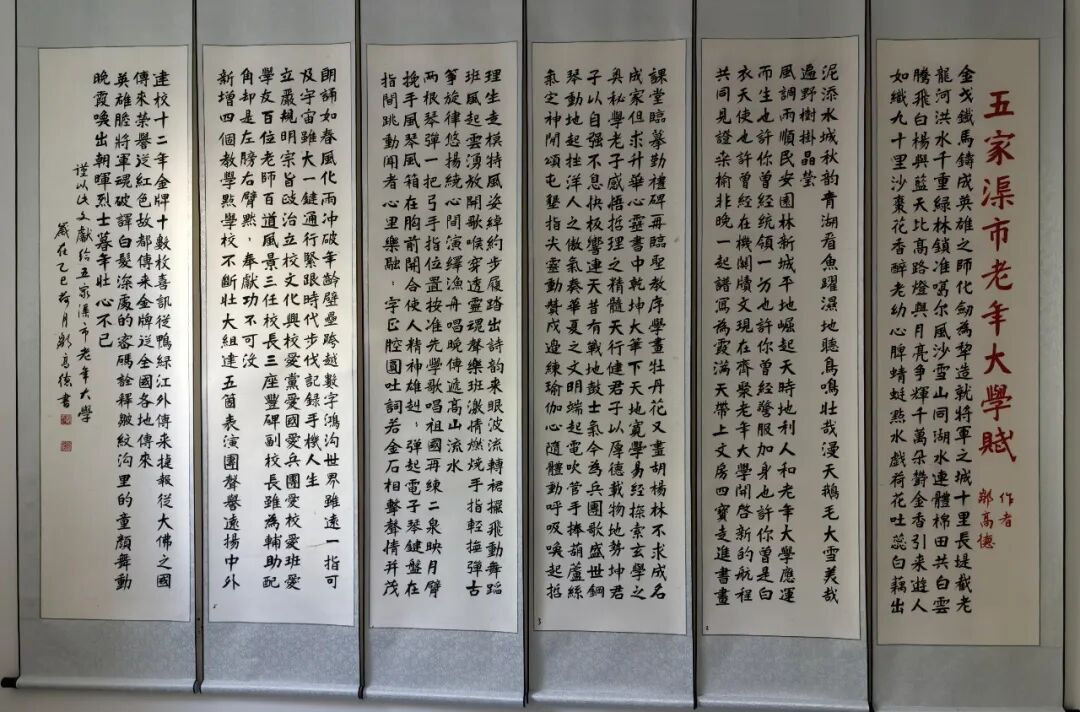 五家渠市老年大學賦
作者
高德
金戈鐵馬鑄成英雄之師化劍為犂造就將軍之城十里長堤截老
龍河洪水千重綠林鎖准噶尔風沙雪山同湖水連體棉田共白雲
騰飛白楊與藍天比高路燈與月亮爭輝千萬朵欝金香引来遊人
如織九十里沙棗花香醉老幼心脾蜻蜓點水戲荷花吐蕊白藕出
泥添水城秋韵青湖看魚躍濕地聽鳥鳴壯哉漫天鵝毛大雪美哉
遍野樹掛晶瑩
風調雨順民安園林新城平地崛起天時地利人和老年大學應運
而生也許你曾經統領一万也許你曾經警服加身也許你曾是白
衣天使也許曾經在機關牘文現在齊聚老年大學開啓新的航程
共同見證桑榆非晚一起譜寫為霞滿天帶上文房四寶走進書畫
2
課堂臨摹勤禮碑再臨聖教序學畫牡丹花又畫胡楊林不求成名
成家但求升華心靈書中乾坤大筆下天地寬學易經探索玄學之
奥秘學老子感悟哲理之精髓天行健君子以厚德載物地势坤君
子以自强不息快板響連天昔有戰地鼓士氣今為兵團歌盛世鋼
琴動地起挫洋人之傲氣奏華夏之文明端起電吹管手捧葫蘆絲
氣定神閒頌屯墾指尖靈動贊戍邊練瑜伽心隨體動呼吸喚起拈
3
理生走模特風姿綽約步履踏出詩韵来眼波流轉裙擺飛動舞蹈
班風起雲湧放開歌喉穿透靈魂聲樂班激情燃燒手指輕撫彈古
箏旋律悠揚繞心間演繹漁舟唱晚傳遞高山流水
两根琴弹一把弓手手指位置按准先學歌唱祖國再練二泉映月臂
挽手風琴風箱在胸前開合使人精神雄赳赳彈起電子琴鍵盤在
指間跳動聞者心里樂融融字正腔圓吐詞若金石相擊聲情并茂
朗誦如春風化雨冲破年齡壁壘跨越數字鴻沟世界雖遠一指可
及宇宙雖大一鍵通行緊跟時代步伐記録手機人生
立嚴規明宗旨政治立校文化興校愛黨愛國愛兵團愛校愛班愛
學友百位老師百道風景三任校長三座豐碑副校長雖為輔助配
角却是左膀右臂點點奉獻功不可没
新增四個教學點學校不斷壯大組建五個表演團聲譽遠揚中外
建校十二年金牌十數枚喜訊從鴨緑江外傳来捷報從大佛之國
傳来榮譽從紅色故都傳来金牌從全國各地傳来
英雄膽將軍魂破譯白髮深處的密碼詮釋皺紋沟里的童顔舞動
晚霞喚出朝暉烈士暮年壯心不已
謹以此文獻給五家渠市老年大學
歲在乙巳荷月高德書